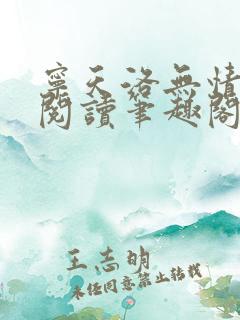 寧天洛無情
閱讀筆趣閣
王志明
未经同意禁止转载